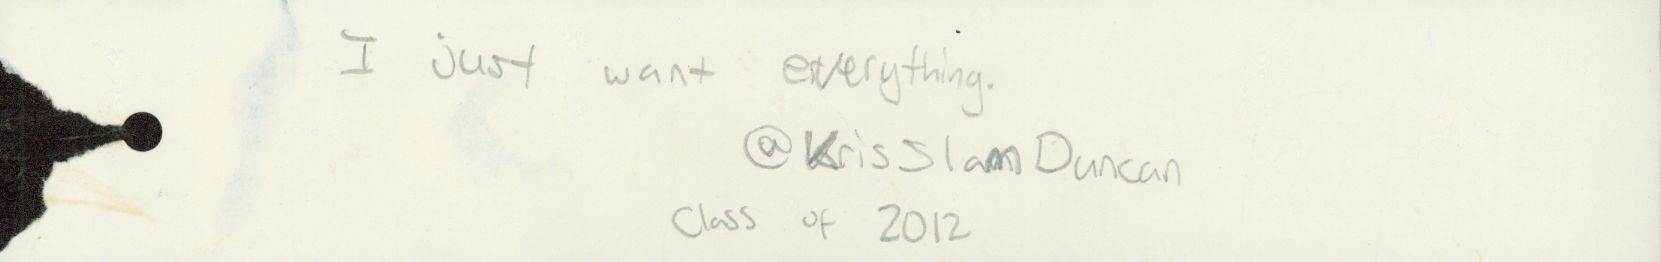 I just want everything.
@KrisSlamDuncan
Class of 2012